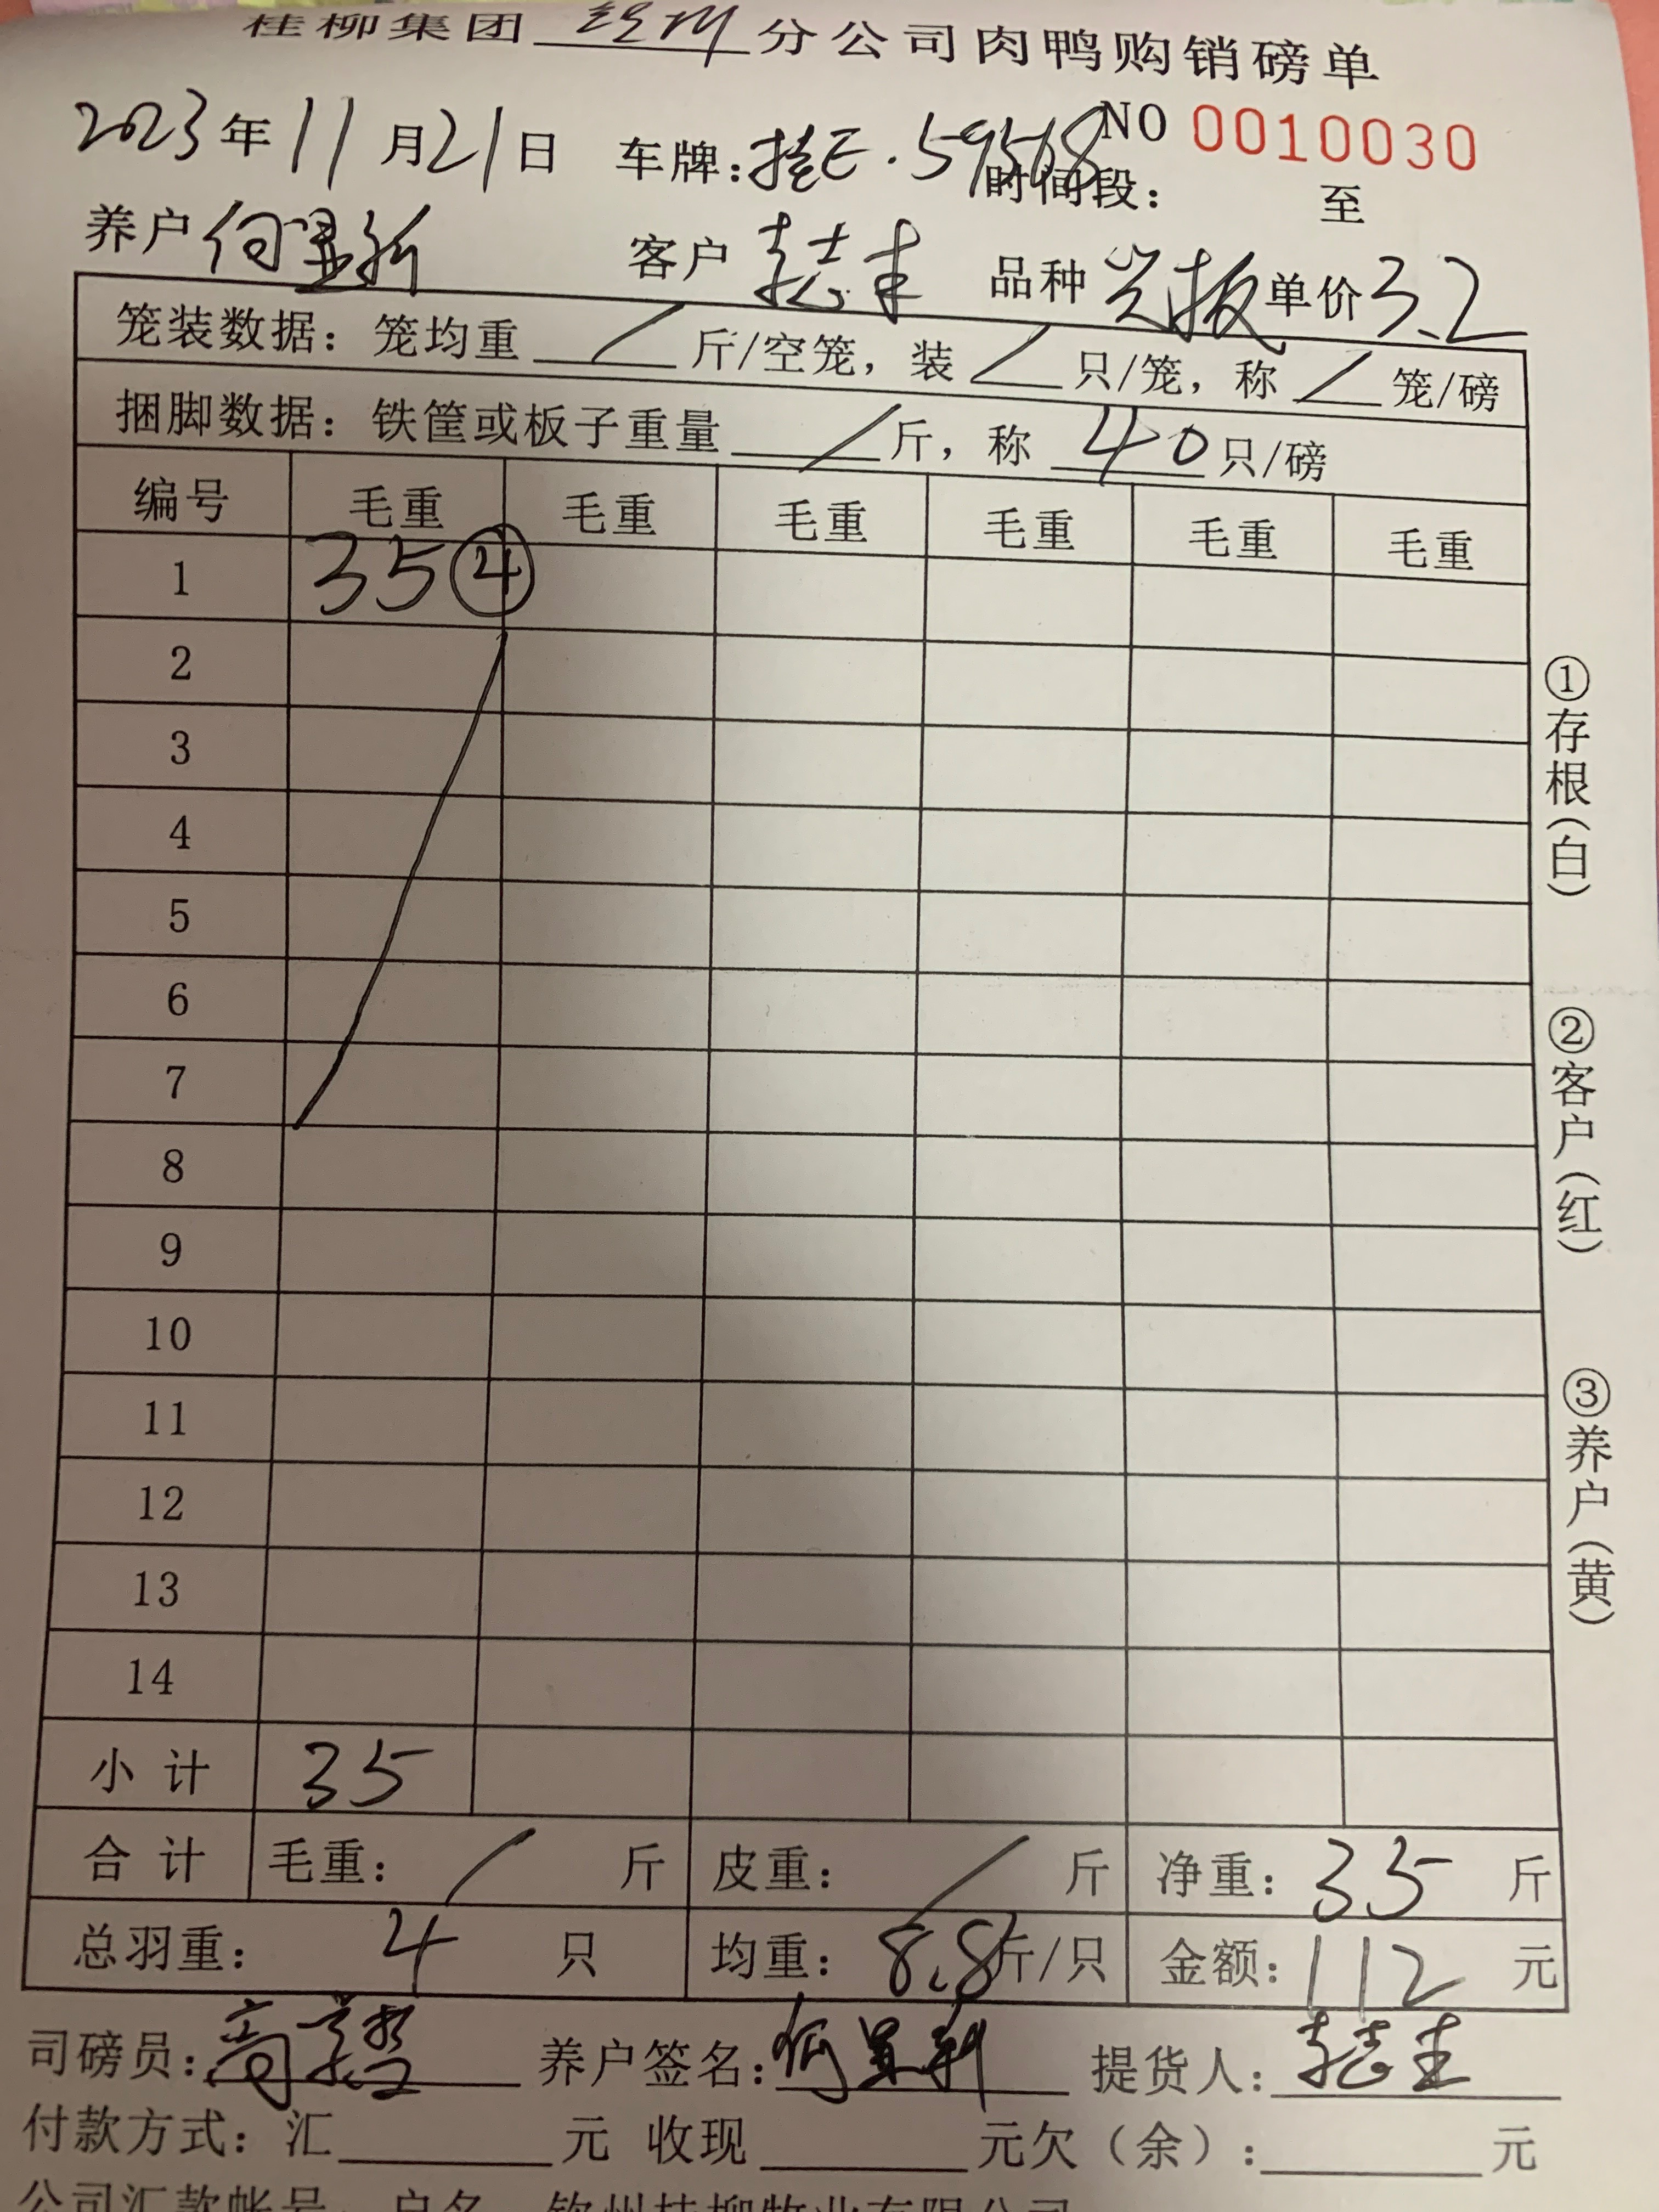 桂柳集团 分公司肉鸭购销磅单
NO 0010030
2023年11月21日 车牌:桂E·59568 时间段: 至
养户 客户 品种 单价3.2
笼装数据:笼均重 / 斤/空笼,装 / 只/笼,称 / 笼/磅
捆脚数据:铁筐或板子重量 / 斤,称 40 只/磅
编号 毛重 毛重 毛重 毛重 毛重 毛重
1 35④
2
3
4
5
6
7
8
9
10
11
12
13
14
小计 35
合计 毛重: / 斤 皮重: / 斤 净重: 35 斤
总羽重: 4 只 均重: 8.8斤/只 金额: 112 元
司磅员: 养户签名: 提货人:
付款方式:汇 元 收现 元欠(余): 元
公司汇款帐号:户名:钦州桂柳牧业有限公司
①存根(白)
②客户(红)
③养户(黄)